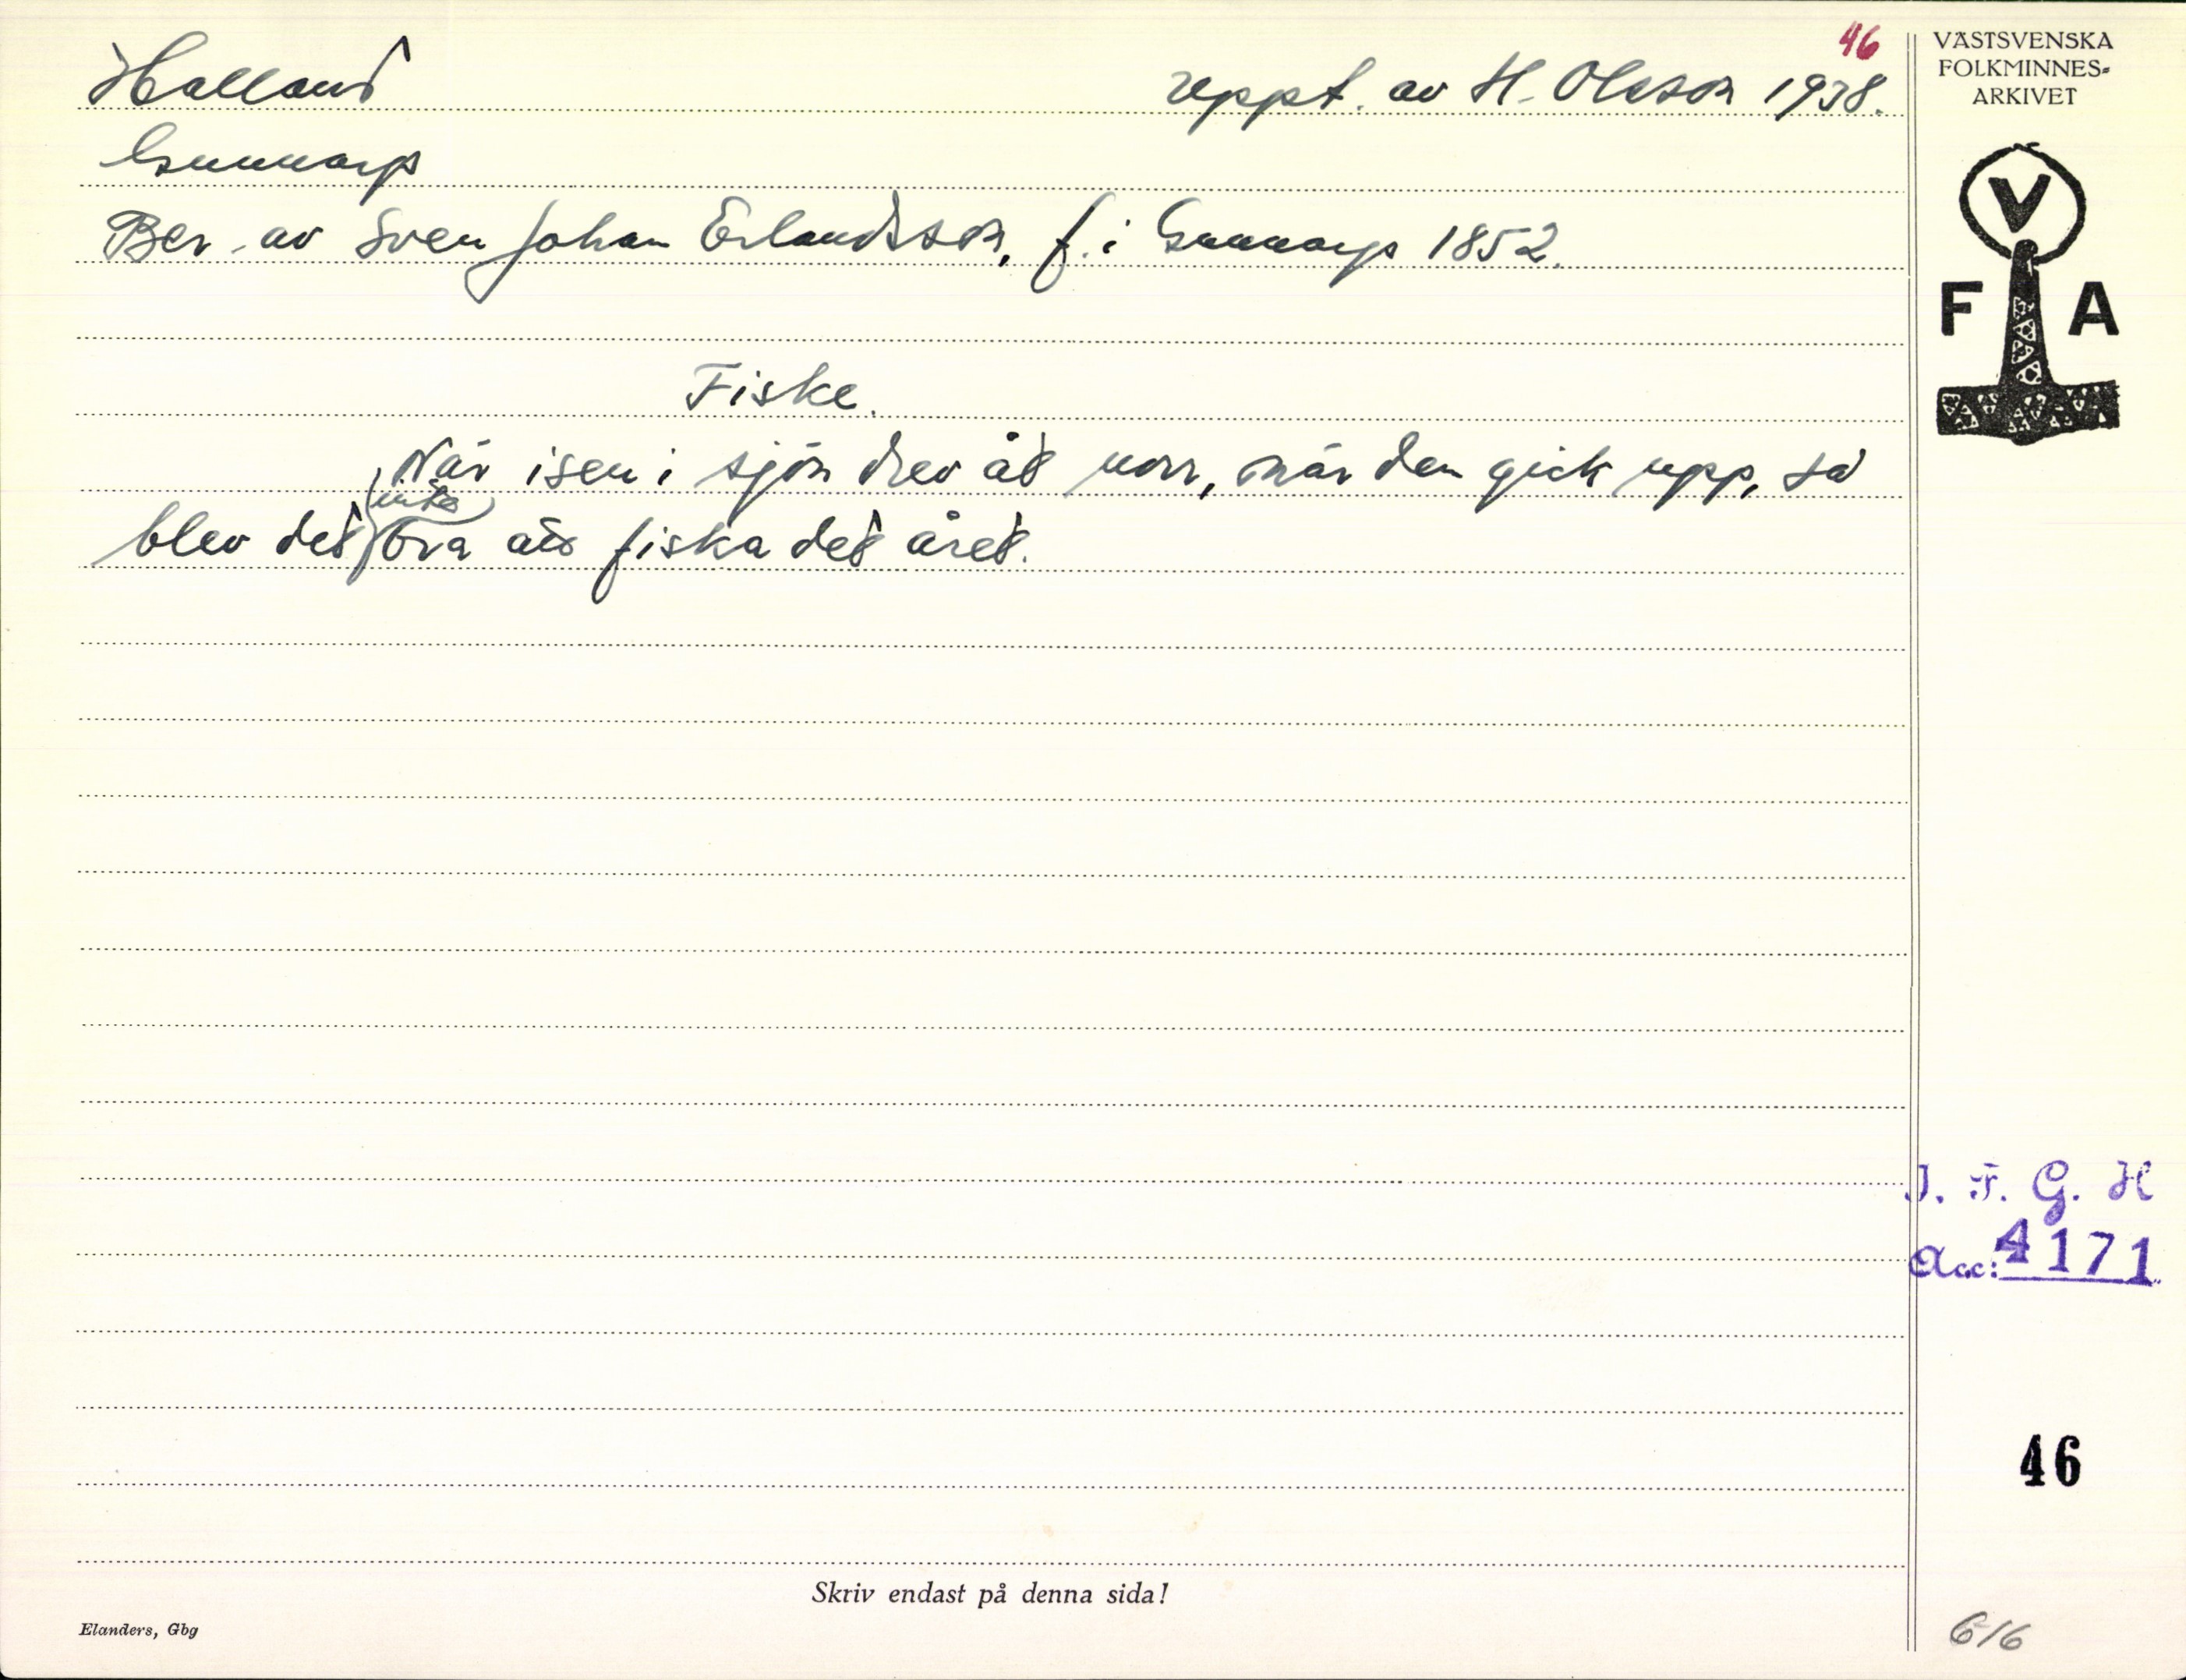 46
Halland
uppt. av H. Olsson 1938.
Gunnarp
Ber. av Sven Johan Erlandsson, f. i Gunnarp 1852.
Fiske.
När isen i sjön drev åt norr, när den gick upp, så
inte
blev det bra att fiska det året.
VÄSTSVENSKA
FOLKMINNES-
ARKIVET
V
F A
I. F. G. H
Acc: 4171
46
Skriv endast på denna sida!
Elanders, Gbg
616